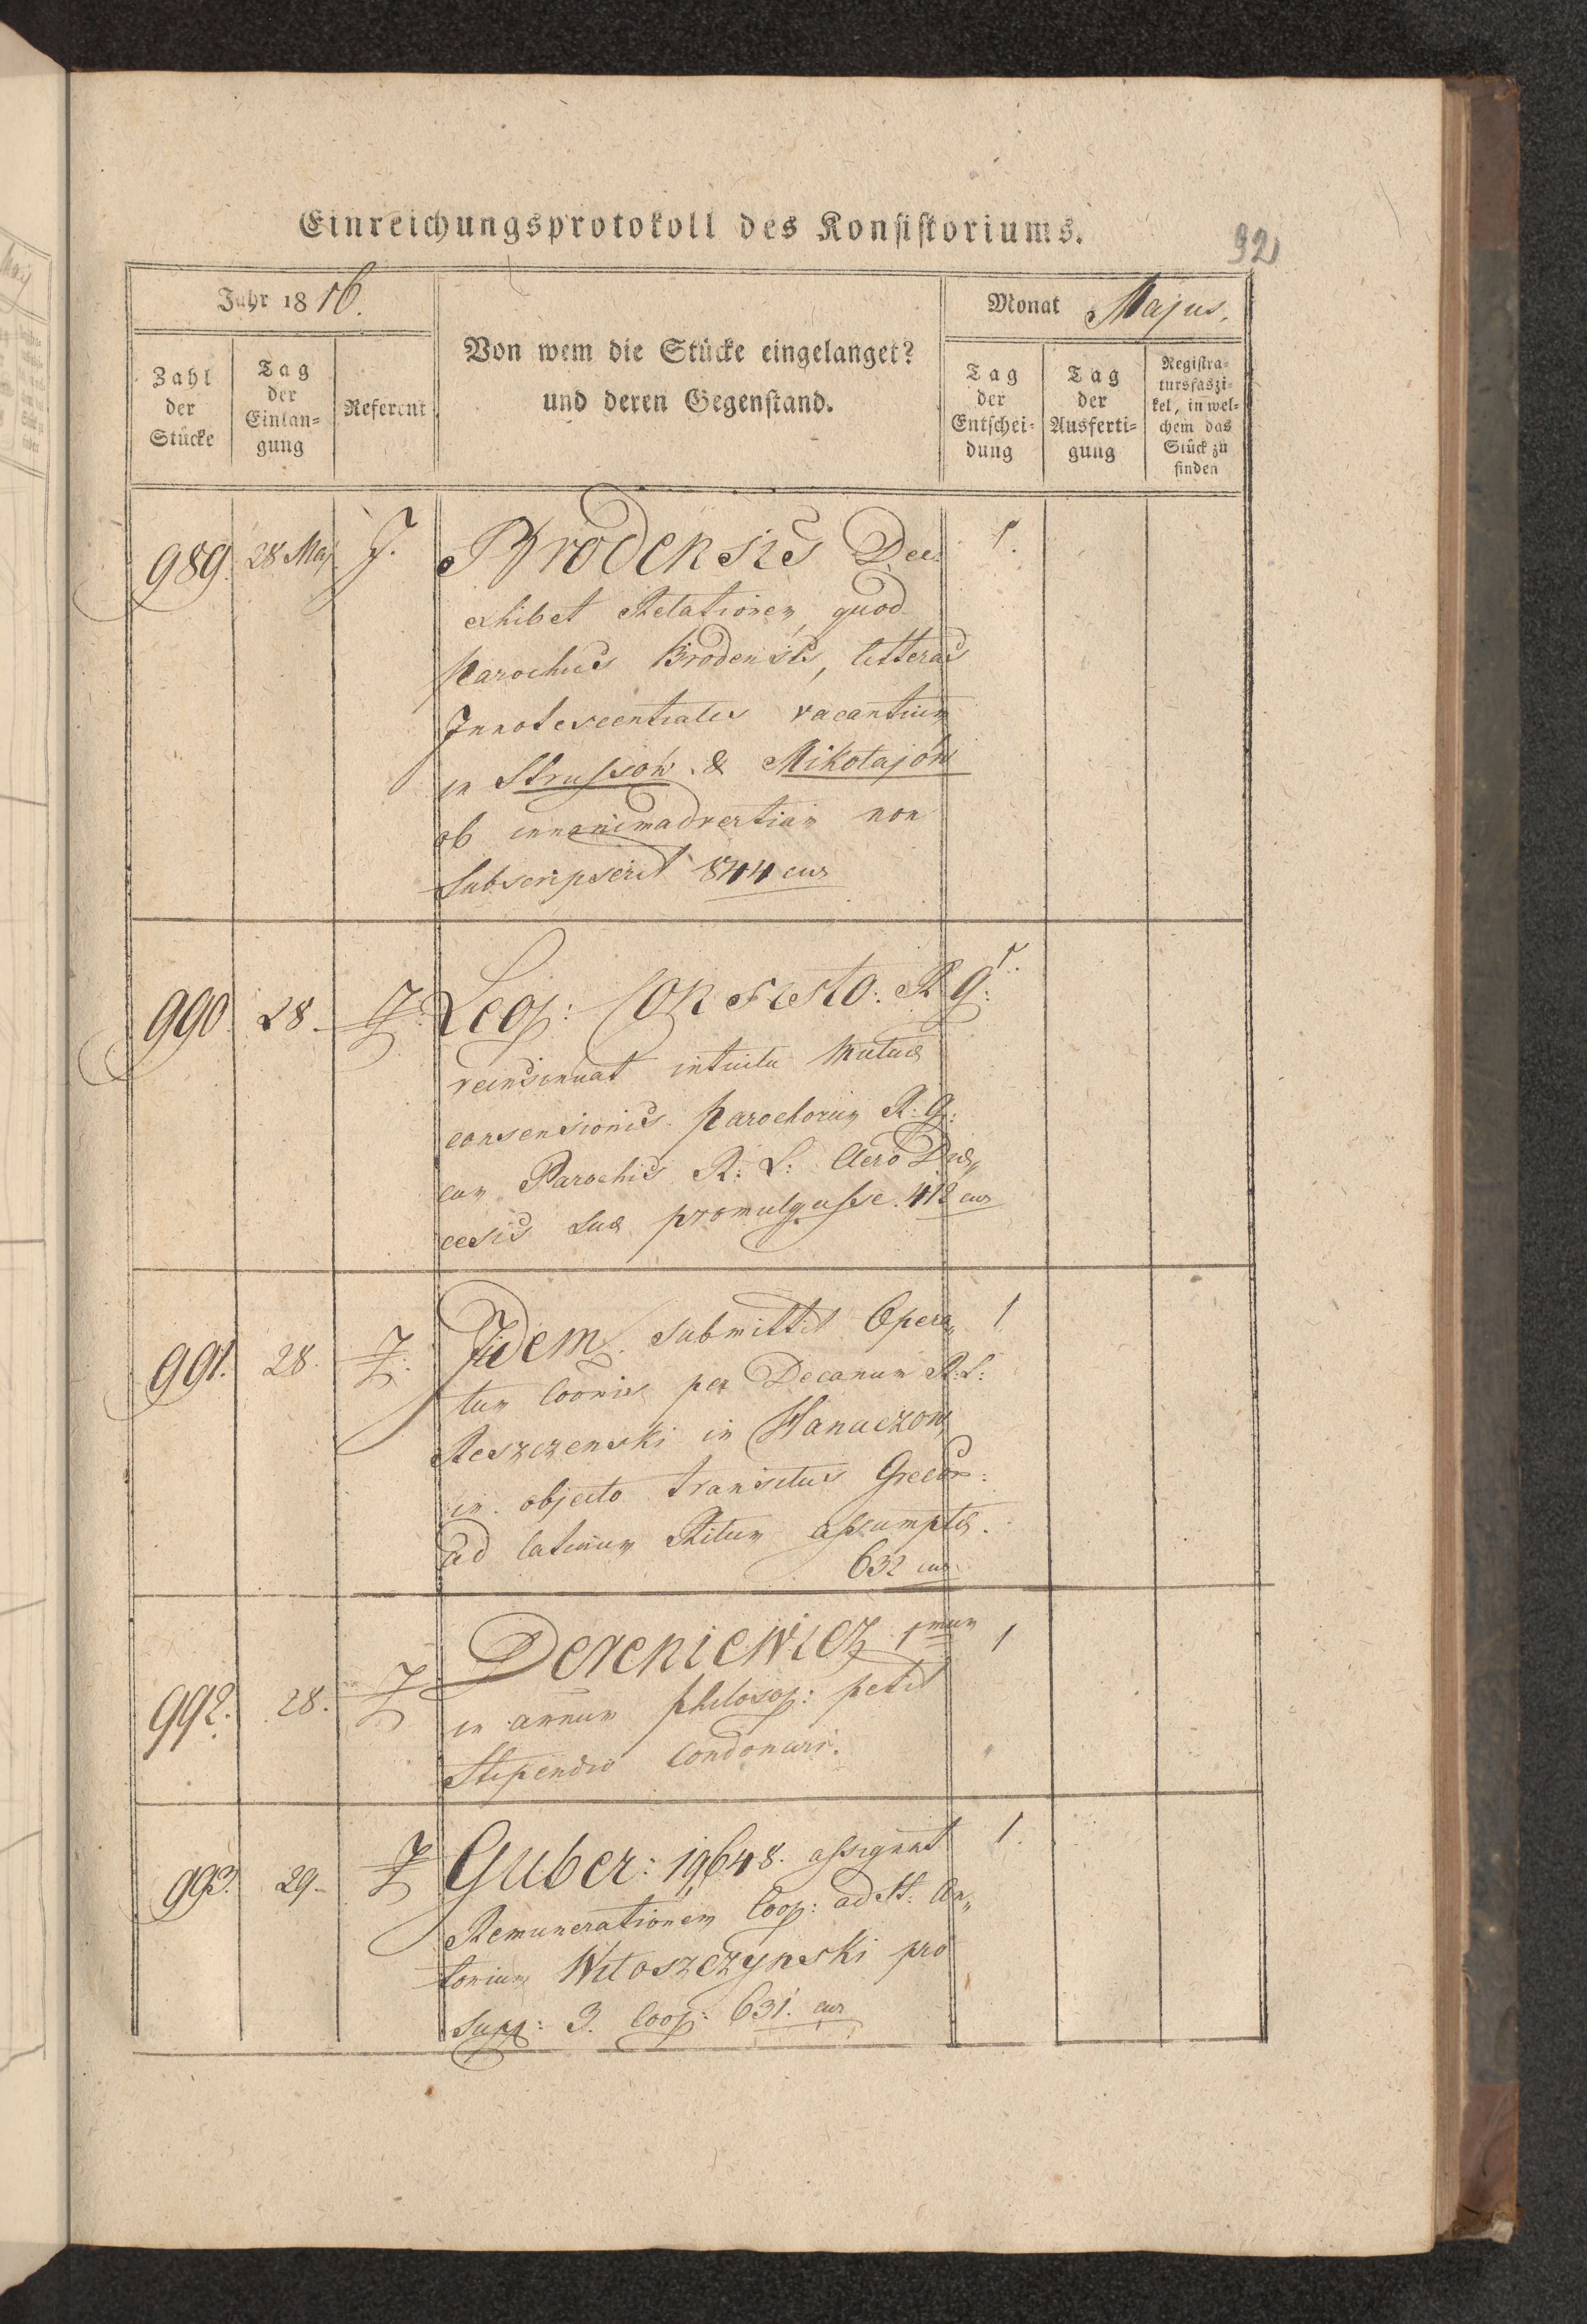 Einreichungsprotokoll des Konsistoriums.
92
Jahr 1816.
Monat Majus.
Zahl der Stücke
Tag der Einlan=gung
Referent
Von wem die Stücke eingelanget?
und deren Gegenstand.
Tag der Entschei=dung
Tag der Ausferti=gung
Registra=tursfaszi=kel, in wel=chem das Stück zu finden
989. 28 Maj J. Brodensis Dec. 1.
exhibet Relationem, quod
Parochus Brodensis, litteras
Innotescentiales vacantium
in Strussow & Mikołajów
ob innanimadvertiam non
Subscripserit 844 eur
990. 28. Leop: Consisto: R g: 1.
reinsinuat intuitu Mutuæ
consensionis Parochorum R: g:
cum Parochis R: L: Clero Diœ„
cesis suæ promulgasse. 412 eur
991. 28. Idem submittit Opera„ 1
tum Coonis per Decanum R: L:
Reszczenski in Hanaczow
in objecto transitus Grecor:
ad latinum Ritum assumptæ.
632 eur
992. 28. Dereniewicz 1mum 1
in annum philosop: petit
Stipendio Condonari.
993. 29. Guber: 19648. assignat 1.
Remunerationem Coop: ad St. An„
tonium Witoszczynski pro
supp: 3. Coop: 631. eur